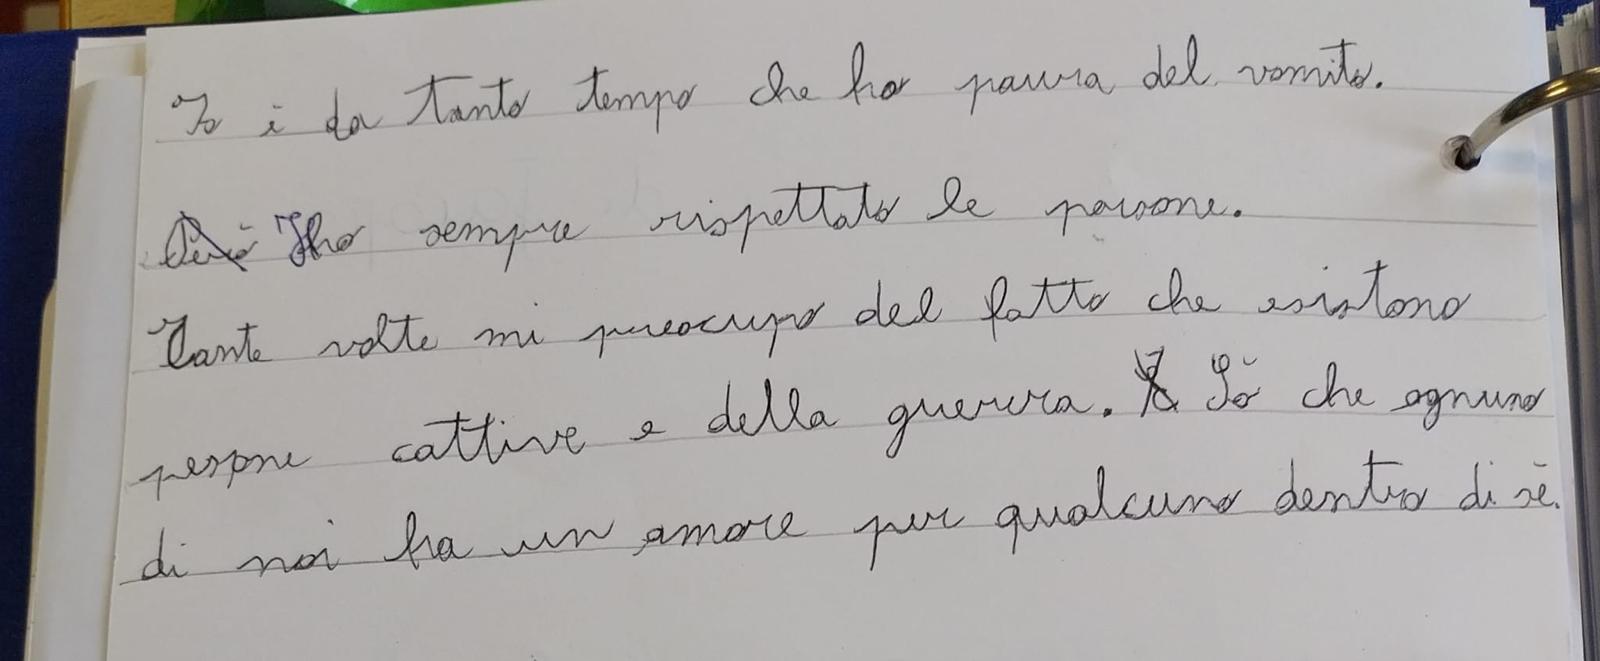 Io è da tanto tempo che ho paura del vomito.
Io ho sempre rispettato le persone.
Tante volte mi preocupo del fatto che esistono
persone cattive e della guerra. So che ognuno
di noi ha un amore per qualcuno dentro di sé.